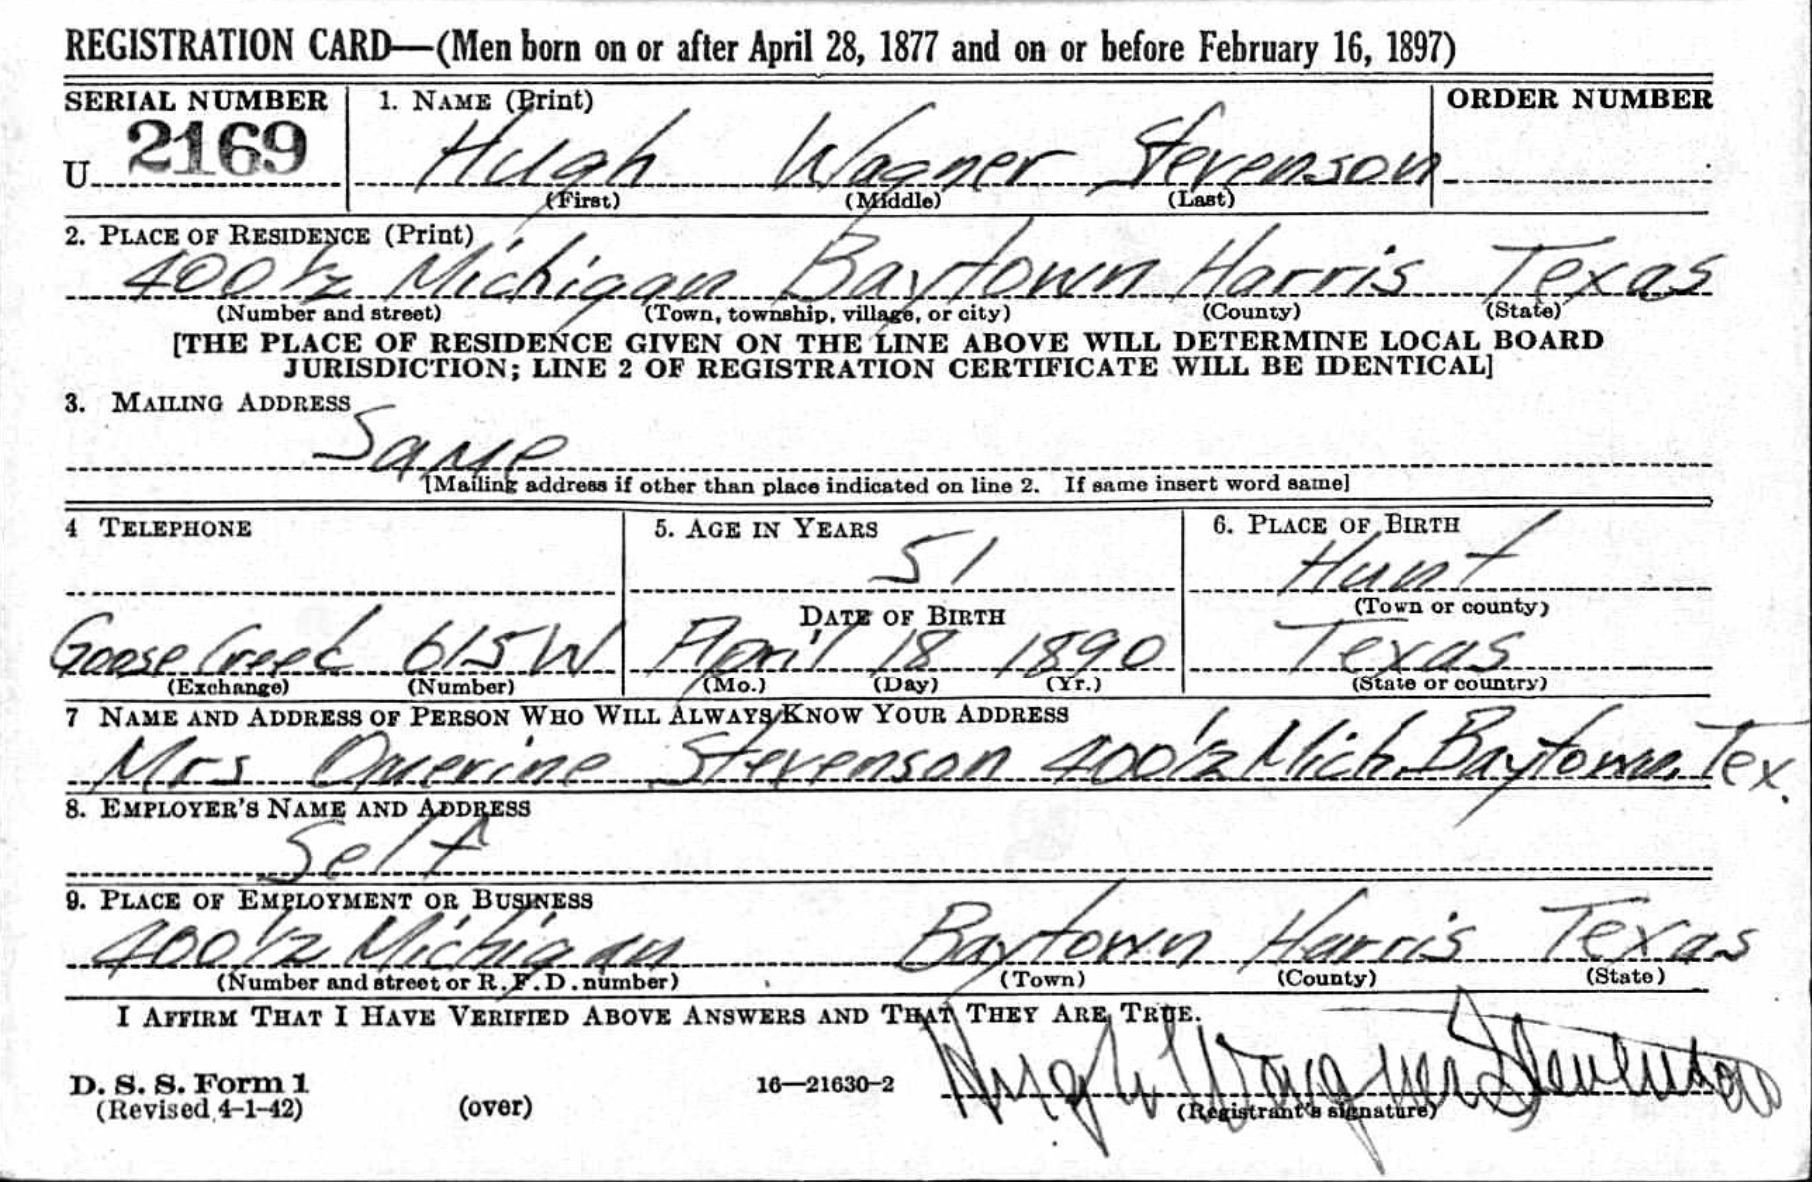 REGISTRATION CARD—(Men born on or after April 28, 1877 and on or before February 16, 1897)
SERIAL NUMBER 1. NAME (Print) ORDER NUMBER
U 2169 Hugh Wagner Stevenson
(First) (Middle) (Last)
2. PLACE OF RESIDENCE (Print)
400 1/2 Michigan Baytown Harris Texas
(Number and street) (Town, township, village, or city) (County) (State)
[THE PLACE OF RESIDENCE GIVEN ON THE LINE ABOVE WILL DETERMINE LOCAL BOARD
JURISDICTION; LINE 2 OF REGISTRATION CERTIFICATE WILL BE IDENTICAL]
3. MAILING ADDRESS
Same
[Mailing address if other than place indicated on line 2. If same insert word same]
4 TELEPHONE 5. AGE IN YEARS 6. PLACE OF BIRTH
51 Hunt
DATE OF BIRTH (Town or county)
Goose Creek 615W April 18 1890 Texas
(Exchange) (Number) (Mo.) (Day) (Yr.) (State or country)
7 NAME AND ADDRESS OF PERSON WHO WILL ALWAYS KNOW YOUR ADDRESS
Mrs Omerine Stevenson 400 1/2 Mich. Baytown, Tex.
8. EMPLOYER'S NAME AND ADDRESS
Self
9. PLACE OF EMPLOYMENT OR BUSINESS
400 1/2 Michigan Baytown Harris Texas
(Number and street or R. F. D. number) (Town) (County) (State)
I AFFIRM THAT I HAVE VERIFIED ABOVE ANSWERS AND THAT THEY ARE TRUE.
Hugh Wagner Stevenson
D. S. S. Form 1 16—21630-2
(Revised 4-1-42) (over) (Registrant's signature)